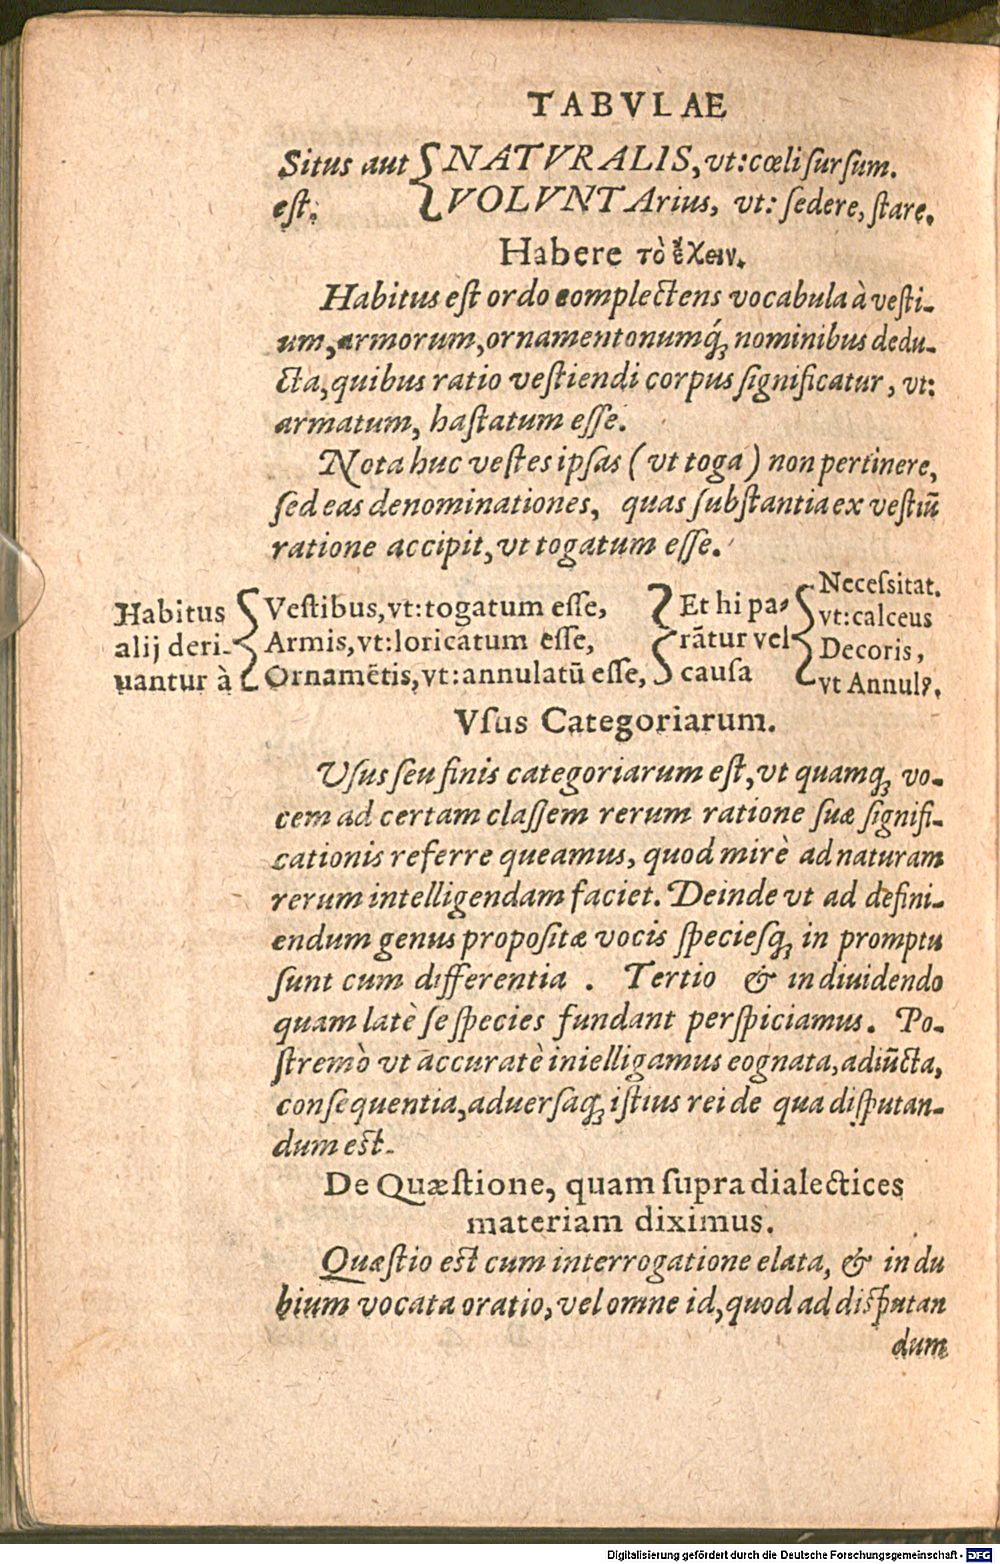 TABVLAE
Situs aut { NATVRALIS, vt: cœli sursum.
est: { VOLVNTArius, vt: sedere, stare.
Habere τὸ ἔχειν.
Habitus est ordo complectens vocabula à vesti-
um, armorum, ornamentonumq́; nominibus dedu-
cta, quibus ratio vestiendi corpus significatur, vt:
armatum, hastatum esse.
Nota huc vestes ipsas (vt toga) non pertinere,
sed eas denominationes, quas substantia ex vestiū
ratione accipit, vt togatum esse.
Habitus { Vestibus, vt: togatum esse, } Et hi pa- { Necessitat.
vt: calceus
alij deri- { Armis, vt: loricatum esse, } rātur vel { Decoris,
uantur à { Ornamētis, vt: annulatū esse, } causa { vt Annulꝰ.
Vsus Categoriarum.
Vsus seu finis categoriarum est, vt quamq; vo-
cem ad certam classem rerum ratione suæ signifi-
cationis referre queamus, quod mirè ad naturam
rerum intelligendam faciet. Deinde vt ad defini-
endum genus propositæ vocis speciesq; in promptu
sunt cum differentia . Tertio & in diuidendo
quam latè se species fundant perspiciamus. Po-
stremò vt accuratè inielligamus eognata, adiūcta,
consequentia, aduersaq; istius rei de qua disputan-
dum est.
De Quæstione, quam supra dialectices
materiam diximus.
Quæstio est cum interrogatione elata, & in du
bium vocata oratio, vel omne id, quod ad disputan
dum
Digitalisierung gefördert durch die Deutsche Forschungsgemeinschaft - DFG